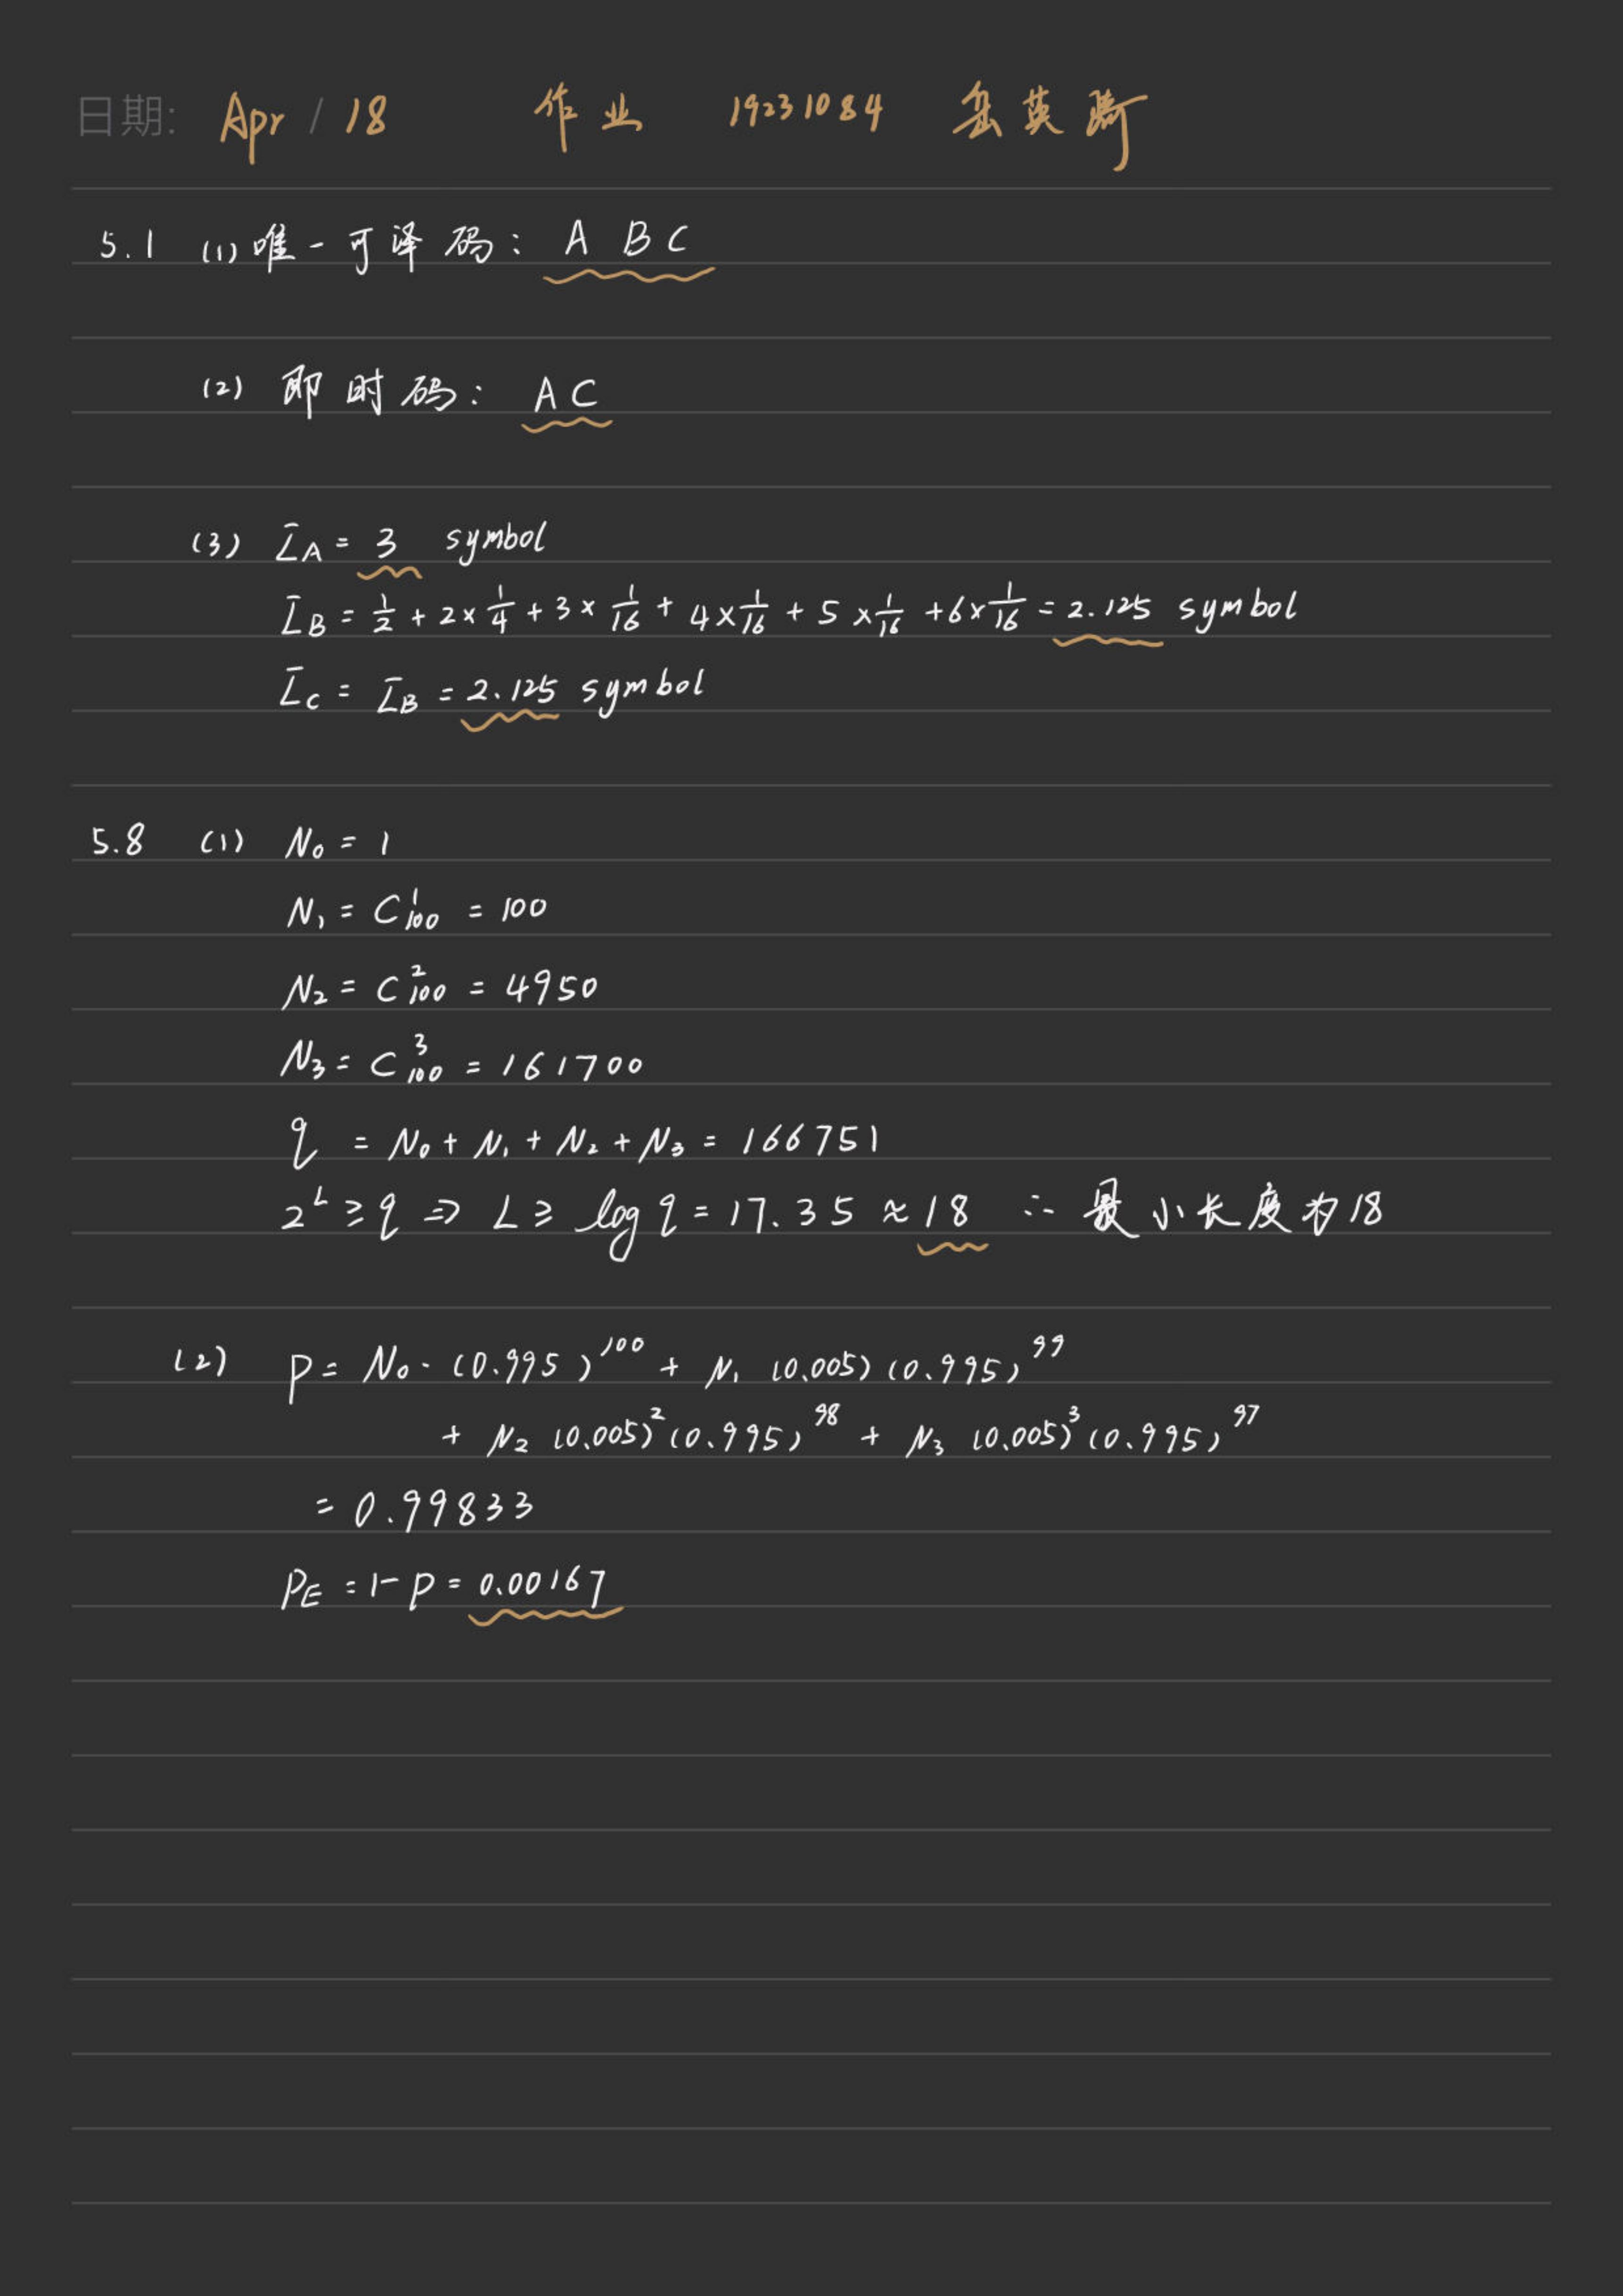 日期: Apr / 18 作业 19231084 岳英
5.1 (1) 唯一可译码: A B C
(2) 即时码: A C
(3) L̄A = 3 symbol
L̄B = 1/2 + 2×1/4 + 3×1/16 + 4×1/16 + 5×1/16 + 6×1/16 = 2.125 symbol
L̄C = L̄B = 2.125 symbol
5.8 (1) N₀ = 1
N₁ = C¹₁₀₀ = 100
N₂ = C²₁₀₀ = 4950
N₃ = C³₁₀₀ = 161700
q = N₀ + N₁ + N₂ + N₃ = 166751
2^L ≥ q ⇒ L ≥ log q = 17.35 ≈ 18 ∴ 最小长度为18
(2) P = N₀·(0.995)¹⁰⁰ + N₁ (0.005)(0.995)⁹⁹
+ N₂ (0.005)²(0.995)⁹⁸ + N₃ (0.005)³(0.995)⁹⁷
= 0.99833
PE = 1-P = 0.00167